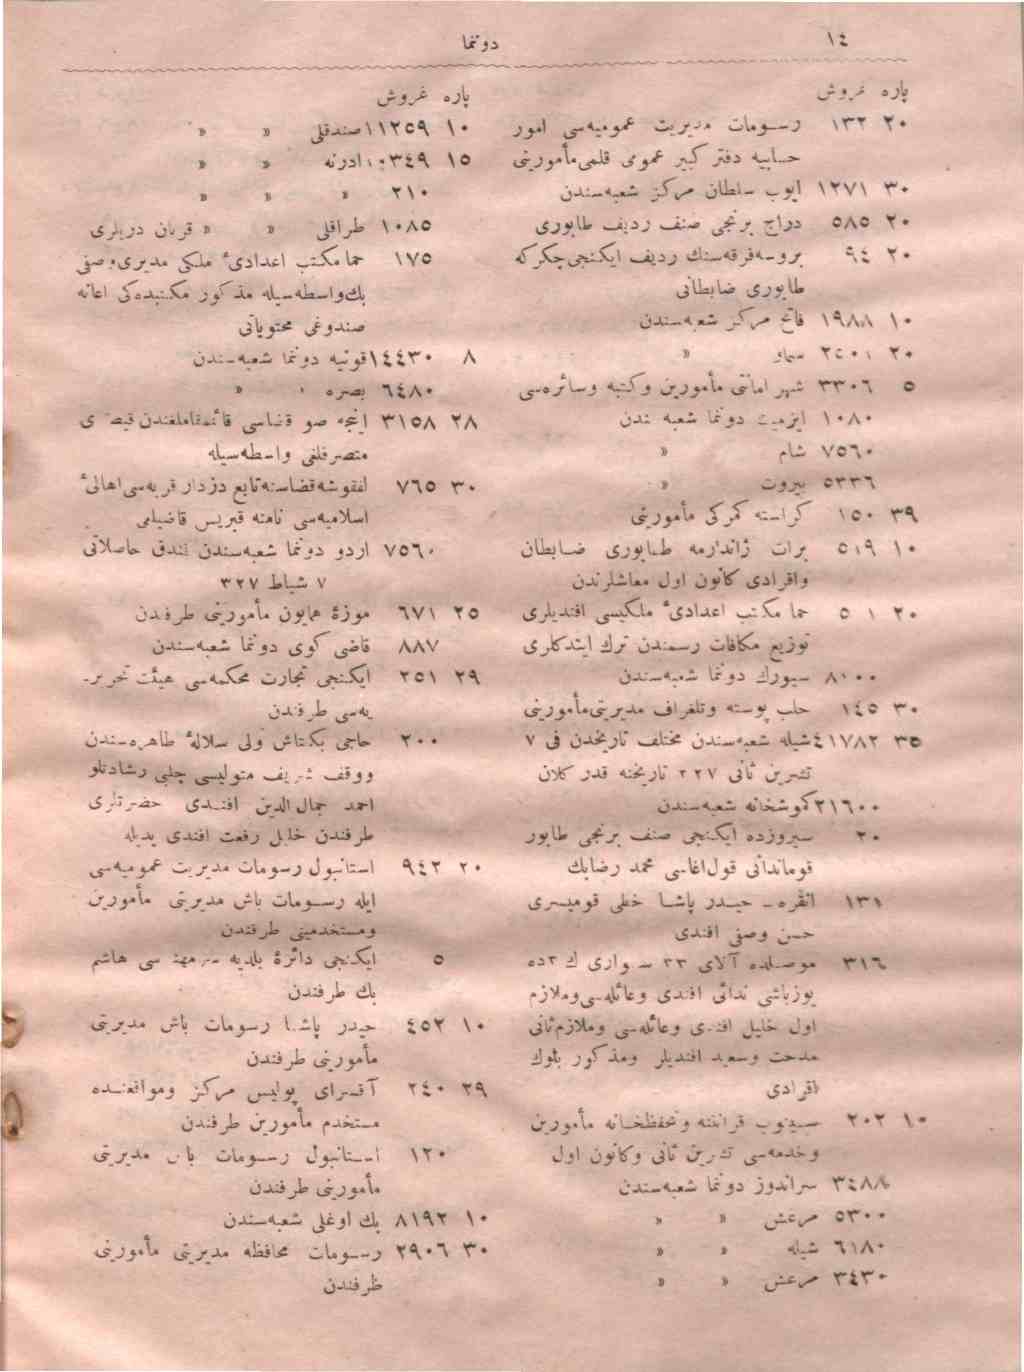 ١٤
دوننما
پاره غروش
٢٠ ١٣٢ رسومات مديريت عموميه‌سی امور
حسابيه دفتر كبير عمومی قلمی مأمورينی
٣٠ ١٢٧١ ايوب سلطان مركز شعبه‌سندن
٢٠ ٥٨٥ دراج برنجی صنف رديف طابوری
٢٠ ٩٤ بروسه فرقه‌سنك رديف ايكنجی چكركه
طابوری ضابطانی
١٠ ١٩٨٨ فاتح مركز شعبه‌سندن
٢٠ »
٥ ٣٣٠٦ شهر امانتی مأمورين وكتبه وسائره‌سی
١٠٨٠ ازميت دوننما شعبه‌سندن
٧٥٦٠ شام »
٥٣٣٦ بيروت »
٣٩ ١٥٠ كراسته كمركی مأمورينی
١٠ ٥١٩ برات ژاندارمه طابوری ضابطان
وافرادی كانون اول معاشلرندن
٢٠ ٥٠١ حما مكتب اعدادیٔ ملكيسی افنديلری
توزيع مكافات رسمندن ترك ايتدكلری
٨١٠٠ سيورك دوننما شعبه‌سندن
٣٠ ١٤٥ حلب پوسته وتلغراف مديريتی مأمورينی
٣٥ ٤١٧٨٢ شيله شعبه‌سندن مختلف تاريخدن فی ٧
تشرين ثانی ٣٢٧ تاريخنه قدر كلان
٢١٦٠٠ كموشخانه شعبه‌سندن
٢٠ سيروزده ايكنجی صنف برنجی طابور
قوماندانی قول‌اغاسی محمد رضابك
١٣١ انقره ـ حيدر پاشا خطی قوميسری
حسن وصفی افندی
٣١٦ موصلده آلای ٣٣ سواری ك ٣ده
يوزباشی ندائی افندی وعائله‌سی وملازم
اول خليل افندی وعائله‌سی وملازم ثانی
مدحت وسعيد افنديلر ومذكور بلوك
افرادی
١٠ ٢٠٢ سينوب قرانتنه وتحفظخانه مأمورين
وخدمه‌سی تشرين ثانی وكانون اول
٣٤٨٨ سراندوز دوننما شعبه‌سندن
٥٣٠٠ مرعش » »
٦١٨٠ شيله » »
٣٤٣٠ مرعش » »
پاره غروش
١٠ ١١٢٥٩ صندقلی » »
١٥ ادرنه » »
٢١٠ » » »
١٠٨٥ طراقلی » » قربان دريلری
١٧٥ حما مكتب اعدادیٔ ملكی مديری وصفی
بك واسطه‌سيله مذكور مكتبده‌كی اعانه
صندوغی محتوياتی
٨ ١٤٤٣٠ قونيه دوننما شعبه‌سندن
٦٤٨٠ بصره » »
٢٨ ٣١٥٨ اينجه صو قضاسی قائمقاملغندن قيصری
متصرفلغی واسطه‌سيله
٣٠ ٧٦٥ لفقوشه قضاسنه تابع دزدار قريه‌سی اهالیٔ
اسلاميه‌سی نامنه قبريس قاضيلمی
٧٥٦٠ اردو دوننما شعبه‌سندن فندق حاصلاتی
٧ شباط ٣٢٧
٢٥ ٦٧١ موزهٔ همايون مأمورينی طرفندن
٨٨٧ قاضی كوی دوننما شعبه‌سندن
٢٩ ٢٥١ ايكنجی تجارت محكمه‌سی هيئت تحرير-
يه‌سی طرفندن
٢٠٠ حاجی بكتاش ولی سلالهٔ طاهره‌سندن
ووقف شريف متوليسی چلبی رشادتلو
احمد جمال‌الدين افندی حضرتلری
طرفندن خليل رفعت افندی يديله
٢٠ ٩٤٢ استانبول رسومات مديريت عموميه‌سی
ايله رسومات باش مديريتی مأمورين
ومستخدمينی طرفندن
٥ ايكنجی دائرهٔ بلديه سرمهندسی هاشم
بك طرفندن
١٠ ٤٥٢ حيدر پاشا رسومات باش مديريتی
مأمورينی طرفندن
٢٩ ٢٤٠ آقسرای پوليس مركز ومواقعنده
مستخدم مأمورين طرفندن
١٢٠ استانبول رسومات باش مديريتی
مأمورينی طرفندن
١٠ ٨١٩٢ بك اوغلی شعبه‌سندن
٣٠ ٢٩٠٦ رسومات محافظه مديريتی مأمورينی
طرفندن